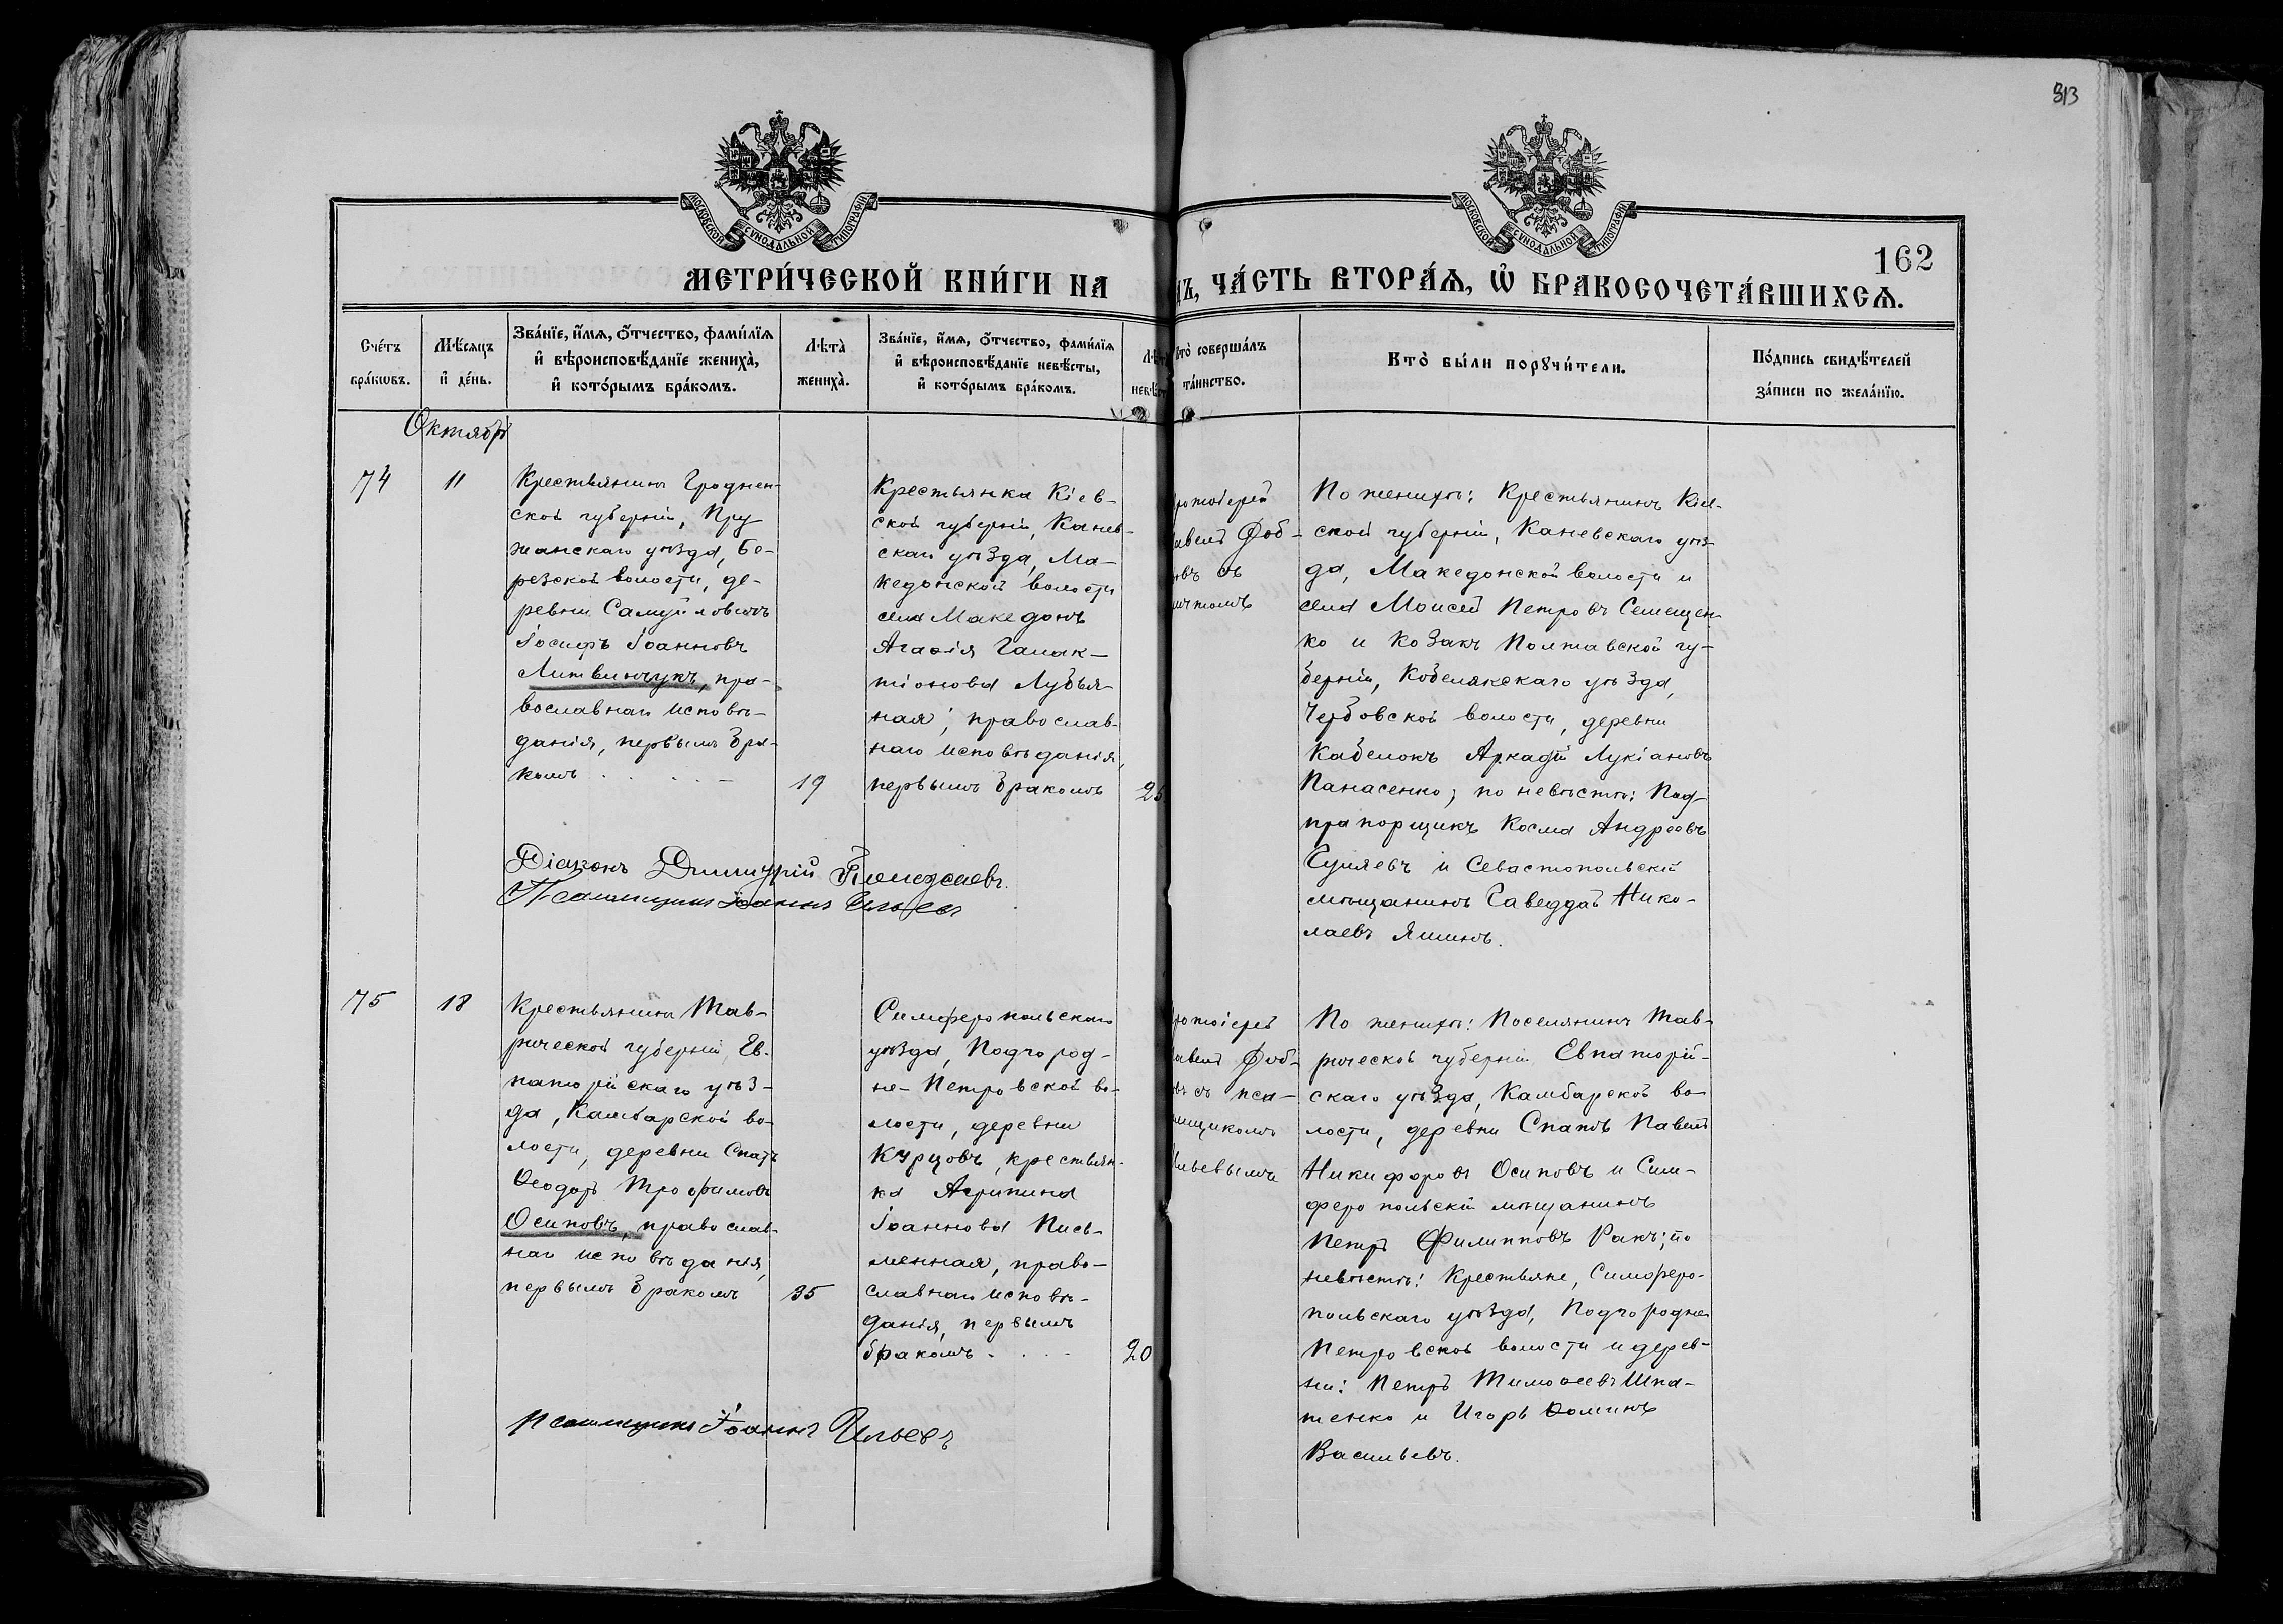 813
МОСКОВСКОЙ СѴНОДАЛЬНОЙ ТИПОГРАФІИ
МОСКОВСКОЙ СѴНОДАЛЬНОЙ ТИПОГРАФІИ
162
МЕТРИ́ЧЕСКОЙ КНИ́ГИ НА
ДЪ, ЧА́СТЬ ВТОРА́Ѧ, Ѽ БРАКОСОЧЕТА́ВШИХСѦ.
Сче́тъ
бра́кѡвъ.
Мѣ́сѧцъ
и҆ де́нь.
Зва́нїе, и҆́мѧ, ѻ҆́тчество, фами́лїѧ
и҆ вѣроисповѣ́данїе жениха̀,
и҆ кото́рымъ бра́комъ.
Лѣта̀
жениха̀.
Зва́нїе, и҆́мѧ, ѻ҆́тчество, фами́лїѧ
и҆ вѣроисповѣ́данїе невѣ́сты,
и҆ кото́рымъ бра́комъ.
Лѣта̀
невѣ́ст
Кто̀ соверша́лъ
та́инство.
Кто̀ бы́ли порꙋчи́тели.
По́дпись свидѣ́телей
за́писи по жела́нїю.
Октябрь
74
11
Крестьянинъ Гроднен-
ской губерніи, Пру
жанскаго уѣзда, Бе-
резской волости, де-
ревни Самуйловичъ
Іосифъ Іоанновъ
Литвинчукъ, пра-
вославнаго исповѣ-
данія, первымъ бра-
комъ . . . . –
19
Крестьянка Кіев-
ской губерніи, Канев-
скаго уѣзда, Ма-
кедонской волости
села Македонъ
Агаѳія Галак-
тіонова Лубья-
ная, православ-
наго исповѣданія,
первымъ бракомъ
25
ротоіерей
авелъ Доб-
овъ съ
ичтомъ
По женихѣ: Крестьянинъ Кіев-
ской губерніи, Каневскаго уѣз-
да, Македонской волости и
села Моисей Петровъ Семещен-
ко и козакъ Полтавской гу-
берніи, Кобелякскаго уѣзда,
волости, деревни
Кабелокъ Аркадій Лукіановъ
Панасенко; по невѣстѣ: Под-
прапорщикъ Косма Андреевъ
и Севастопольскій
мѣщанинъ Нико-
лаевъ Яшинъ.
Діаконъ Димитрій
Псаломщикъ Іоаннъ Ильевъ
75
18
Крестьянинъ Тав-
рической губерніи, Ев-
паторійскаго уѣз-
да, Камбарской во-
лости, деревни Спатъ
Ѳеодоръ Троѳимовъ
Осиповъ, православ-
наго исповѣданія,
первымъ бракомъ
35
Симферопольскаго
уѣзда, Подгород-
не-Петровской во-
лости, деревни
Курцовъ, крестьян-
ка Агрипина
Іоаннова Пись-
менная, право-
славнаго исповѣ-
данія, первымъ
бракомъ . . . .
20
ротоіерей
авелъ Доб-
въ съ пса-
мщикомъ
Ильевымъ
По женихѣ: Поселянинъ Тав-
рической губерніи Евпаторій-
скаго уѣзда, Камбарской во
лости, деревни Спатъ Павелъ
Никифоровъ Осиповъ и Сим-
феропольскій мѣщанинъ
Петръ Филипповъ Ракъ; по
невѣстѣ: Крестьяне, Симферо-
польскаго уѣзда, Подгородне
Петровской волости и дерев-
ни: Петръ Тимоѳеевъ Шпа-
тенко и Игорь Ѳоминъ
Васильевъ.
Псаломщикъ Іоаннъ Ильевъ